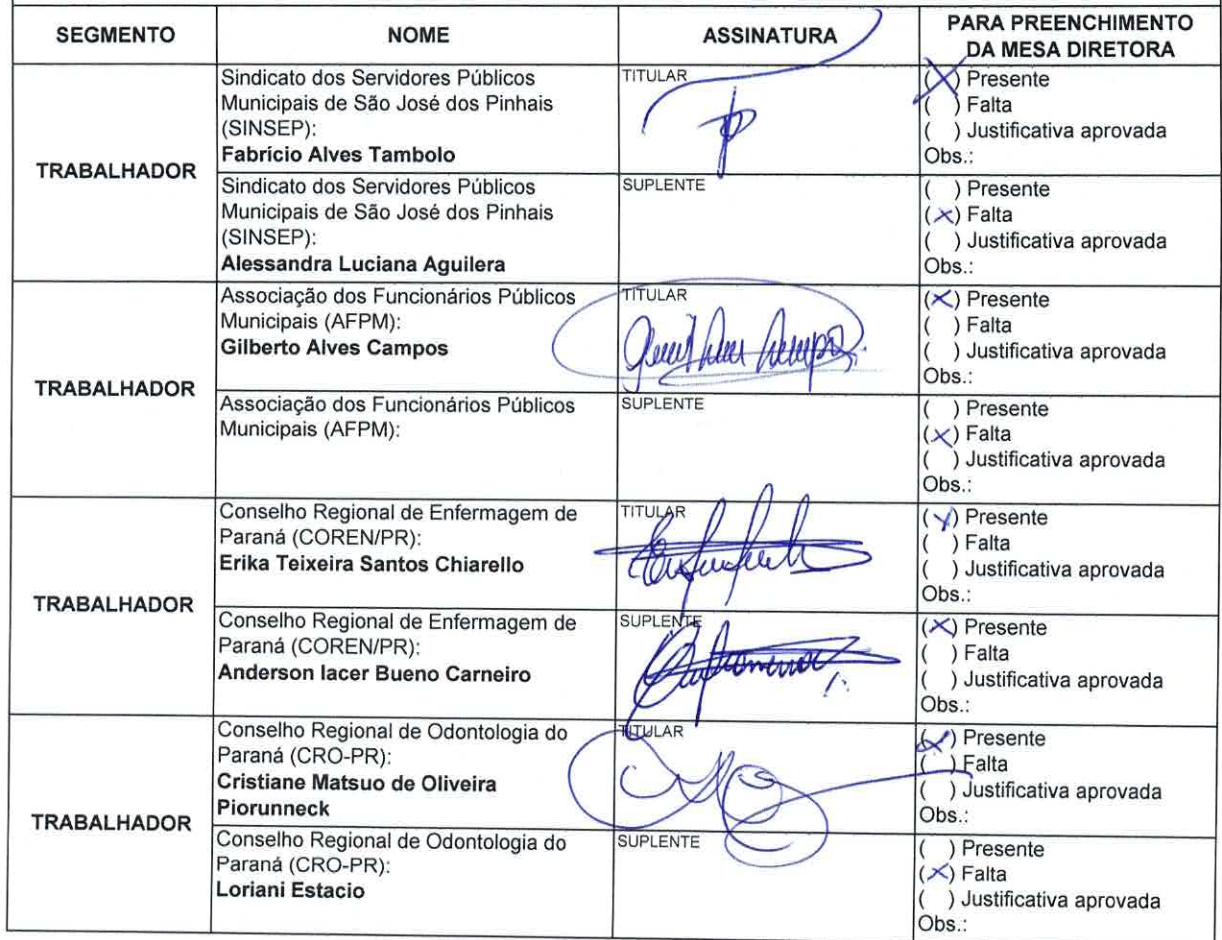 SEGMENTO
NOME
ASSINATURA
PARA PREENCHIMENTO
DA MESA DIRETORA
TRABALHADOR
Sindicato dos Servidores Públicos
Municipais de São José dos Pinhais
(SINSEP):
Fabrício Alves Tambolo
TITULAR
(X) Presente
( ) Falta
( ) Justificativa aprovada
Obs.:
Sindicato dos Servidores Públicos
Municipais de São José dos Pinhais
(SINSEP):
Alessandra Luciana Aguilera
SUPLENTE
( ) Presente
(X) Falta
( ) Justificativa aprovada
Obs.:
TRABALHADOR
Associação dos Funcionários Públicos
Municipais (AFPM):
Gilberto Alves Campos
TITULAR
(X) Presente
( ) Falta
( ) Justificativa aprovada
Obs.:
Associação dos Funcionários Públicos
Municipais (AFPM):
SUPLENTE
( ) Presente
(X) Falta
( ) Justificativa aprovada
Obs.:
TRABALHADOR
Conselho Regional de Enfermagem de
Paraná (COREN/PR):
Erika Teixeira Santos Chiarello
TITULAR
(X) Presente
( ) Falta
( ) Justificativa aprovada
Obs.:
Conselho Regional de Enfermagem de
Paraná (COREN/PR):
Anderson Iacer Bueno Carneiro
SUPLENTE
(X) Presente
( ) Falta
( ) Justificativa aprovada
Obs.:
TRABALHADOR
Conselho Regional de Odontologia do
Paraná (CRO-PR):
Cristiane Matsuo de Oliveira
Piorunneck
TITULAR
(X) Presente
( ) Falta
( ) Justificativa aprovada
Obs.:
Conselho Regional de Odontologia do
Paraná (CRO-PR):
Loriani Estacio
SUPLENTE
( ) Presente
(X) Falta
( ) Justificativa aprovada
Obs.: